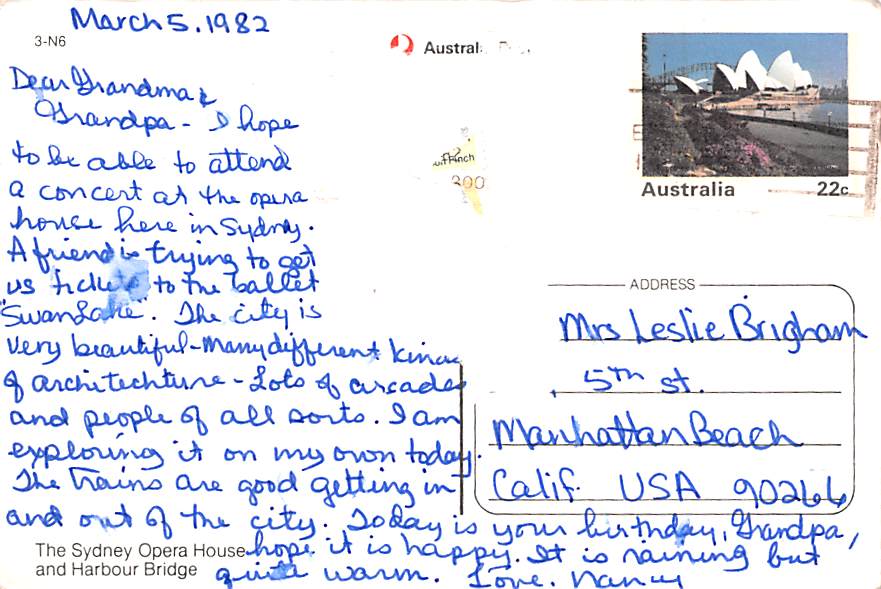 March 5, 1982
3-N6
Dear Grandma &
Grandpa - I hope
to be able to attend
a concert at the opera
house here in Sydney.
A friend is trying to get
us tickets to the ballet
"Swan Lake". The city is
very beautiful - Many different kinds
of architechture - Lots of arcades
and people of all sorts. I am
exploring it on my own today.
The trains are good getting in
and out of the city. Today is your birthday, Grandpa,
hope it is happy. It is raining but
quite warm. Love, Nancy
The Sydney Opera House
and Harbour Bridge
Australia
Australia 22c
ADDRESS
Mrs Leslie Brigham
5th st.
Manhattan Beach
Calif. USA 90266